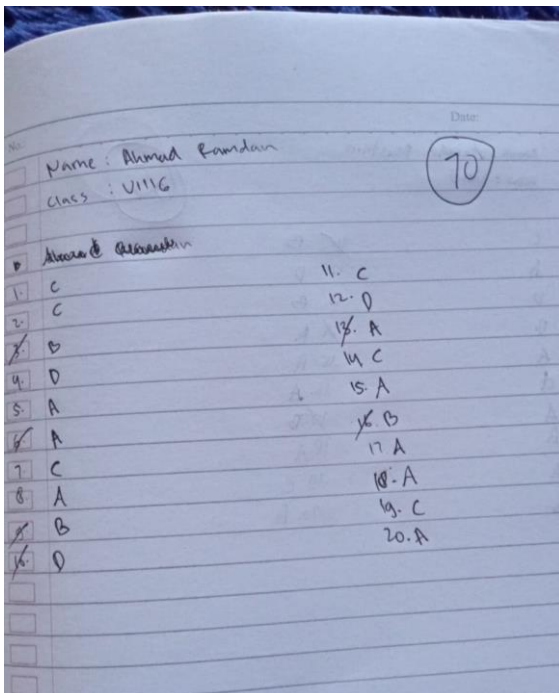 No:
Date:
Name : Ahmad Ramdan
Class : VIIIG
70
1. C
2. C
3. B
4. D
5. A
6. A
7. C
8. A
9. B
10. D
11. C
12. D
13. A
14 C
15. A
16. B
17 A
18. A
19. C
20. A